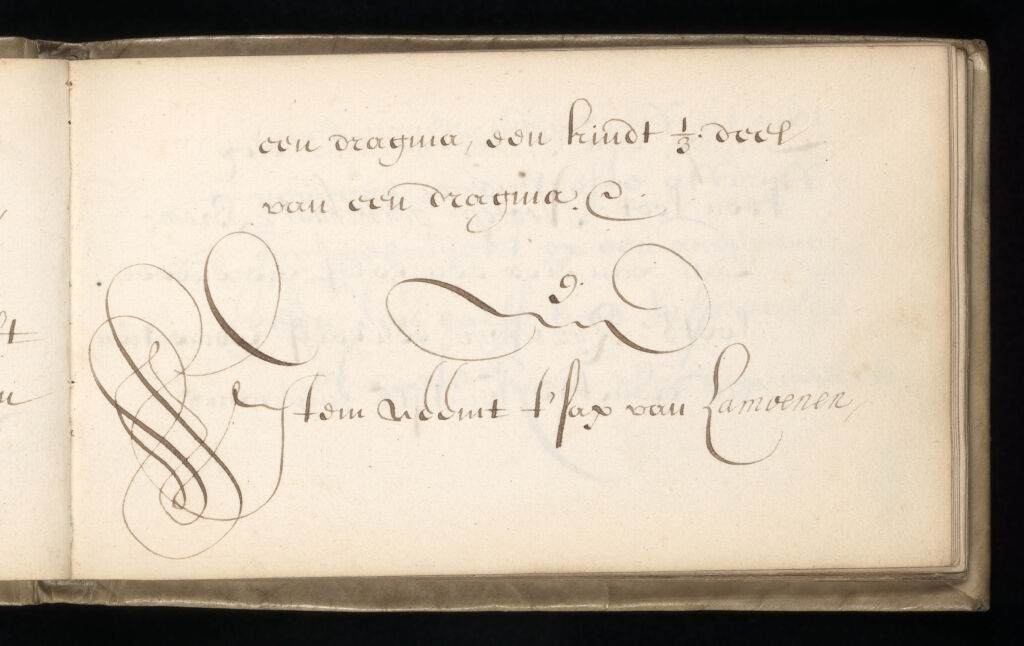 een dragma, een kindt 1/3. deel
van een dragma.
9.
Item neemt t'sap van Lamoenen,